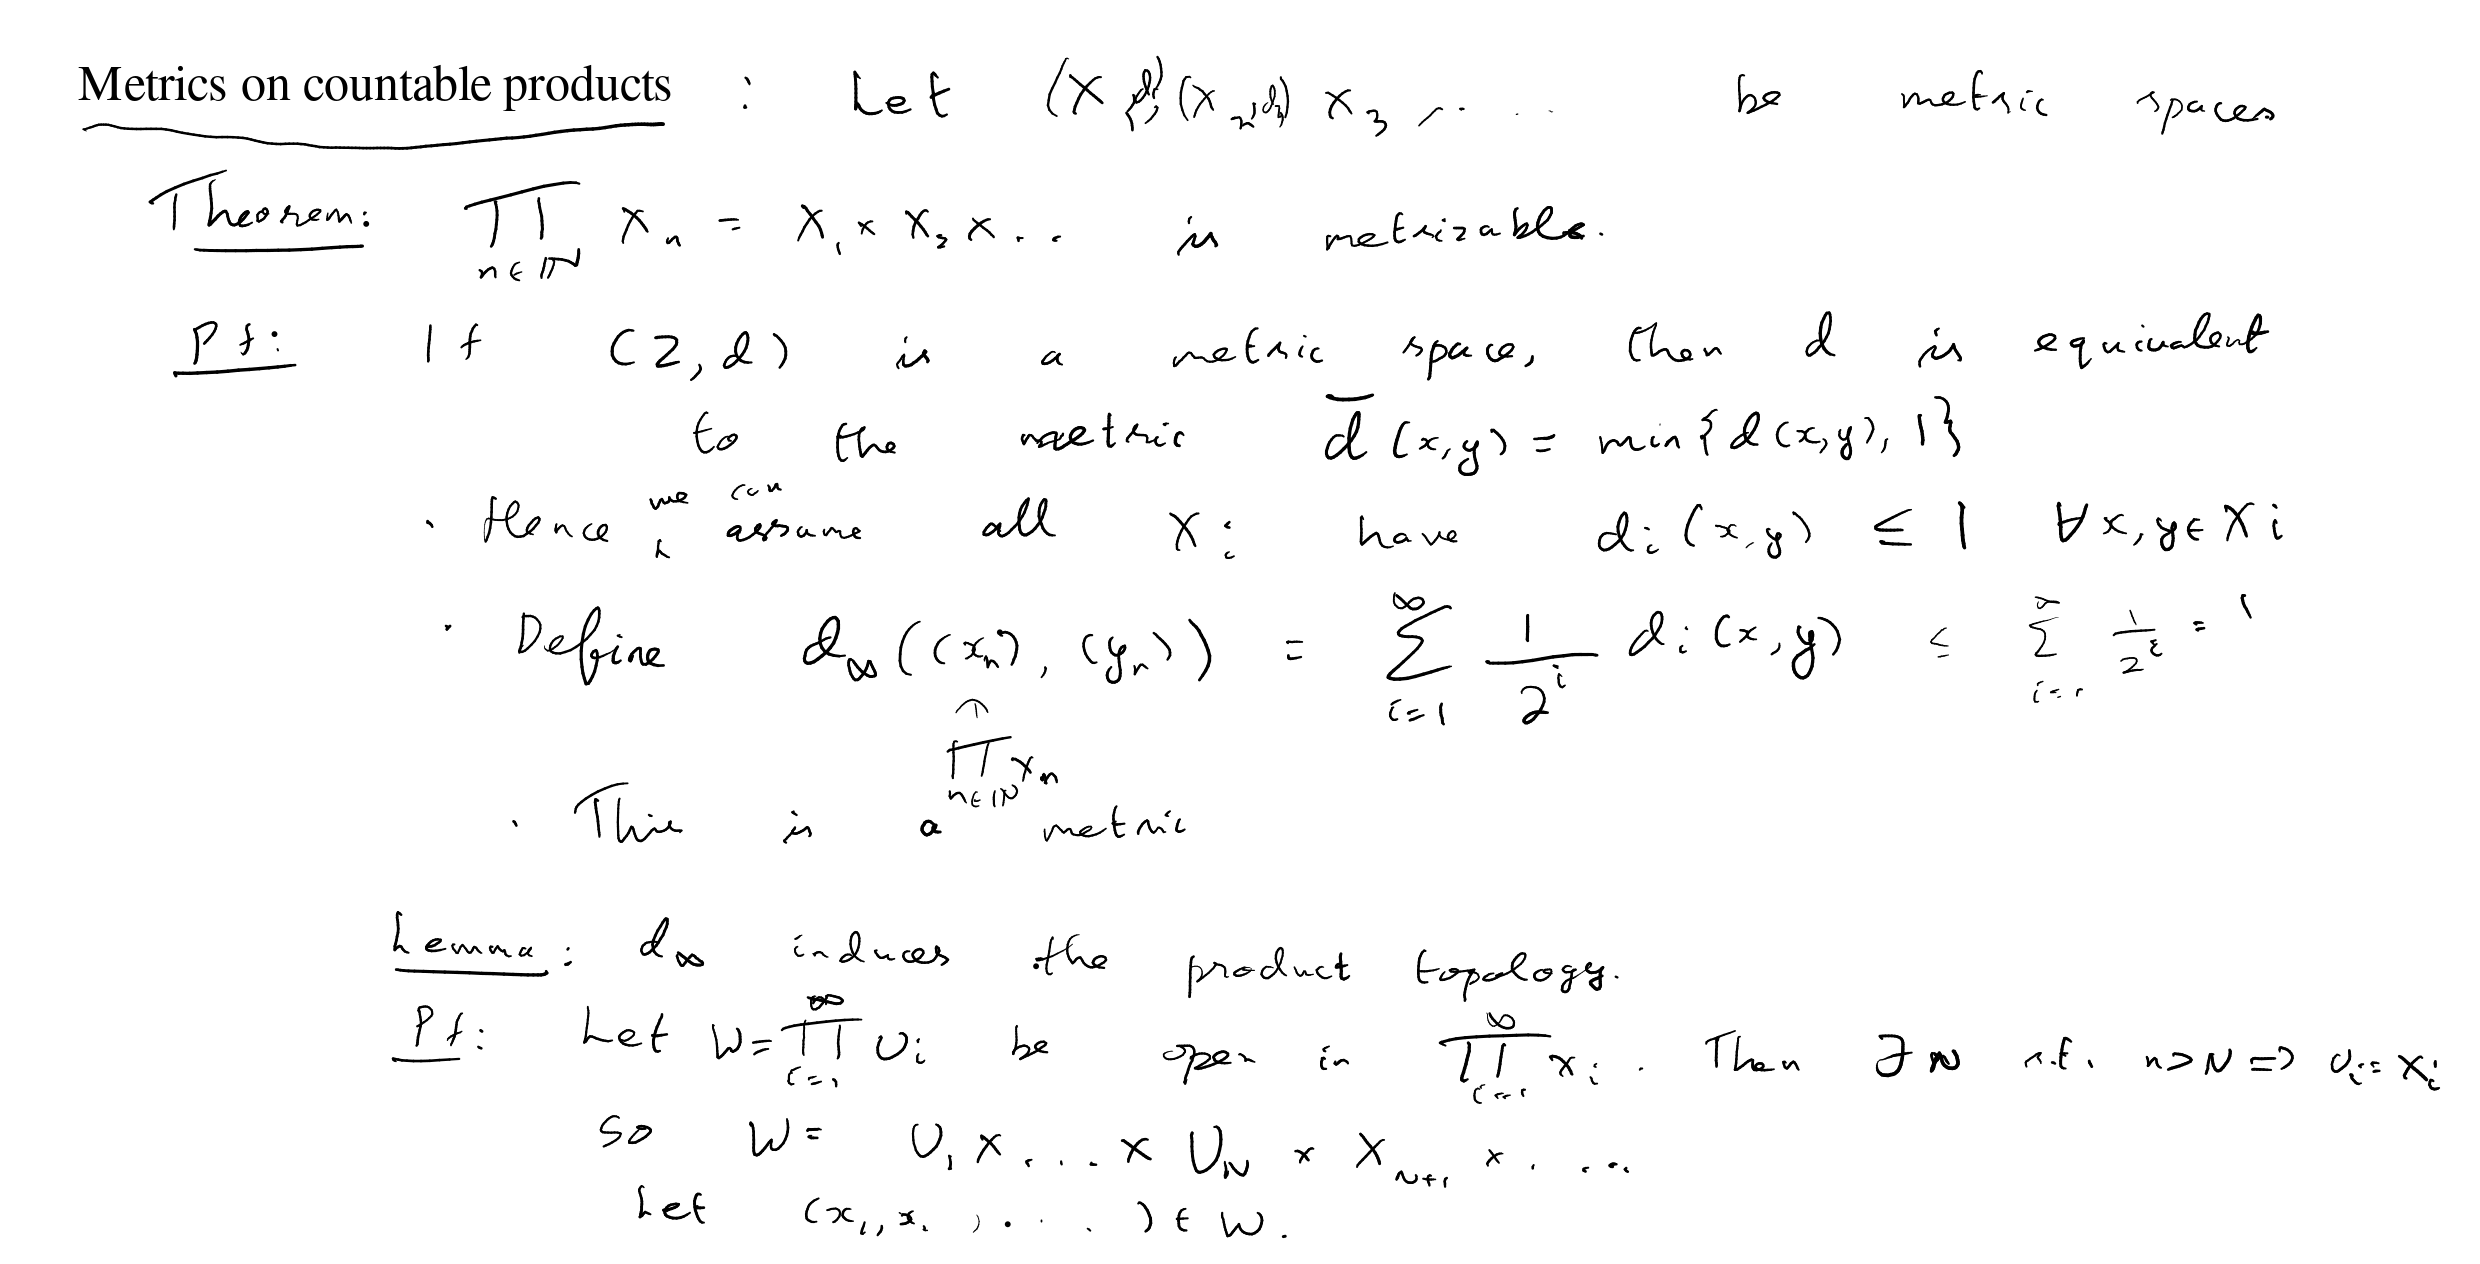 Metrics on countable products : Let (X₁,d₁), (X₂,d₂) X₃, .... be metric spaces
Theorem: ∏_{n∈ℕ} Xₙ = X₁ × X₂ × .. is metrizable.
Pf: If (Z,d) is a metric space, then d is equivalent
to the metric d̄(x,y) = min{d(x,y), 1}
· Hence we can assume all Xᵢ have dᵢ(x,y) ≤ 1 ∀x,y∈Xᵢ
· Define d_∞((xₙ), (yₙ)) = ∑_{i=1}^{∞} 1/2^i dᵢ(x,y) ≤ ∑_{i=1}^{∞} 1/2^i = 1
∈ ∏_{n∈ℕ} Xₙ
· This is a metric
Lemma: d_∞ induces the product topology.
Pf: Let W = ∏_{i=1}^{∞} Uᵢ be open in ∏_{i=1}^{∞} Xᵢ. Then ∃N s.t. n>N => Uᵢ = Xᵢ
so W = U₁ × ... × U_N × X_{N+1} × ....
Let (x₁, x₂, ....) ∈ W.